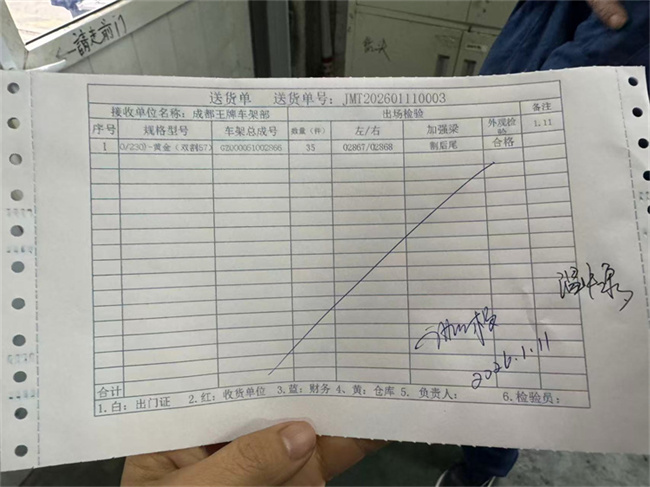 请走前门
送货单 送货单号：JMT202601110003
接收单位名称：成都王牌车架部 出场检验 备注
序号 规格型号 车架总成号 数量（件） 左/右 加强梁 外观检验 1.11
1 35 02867/02868 割后尾 合格
2026.1.11
合计
1.白：出门证 2.红：收货单位 3.蓝：财务 4、黄：仓库 5、负责人： 6.检验员：